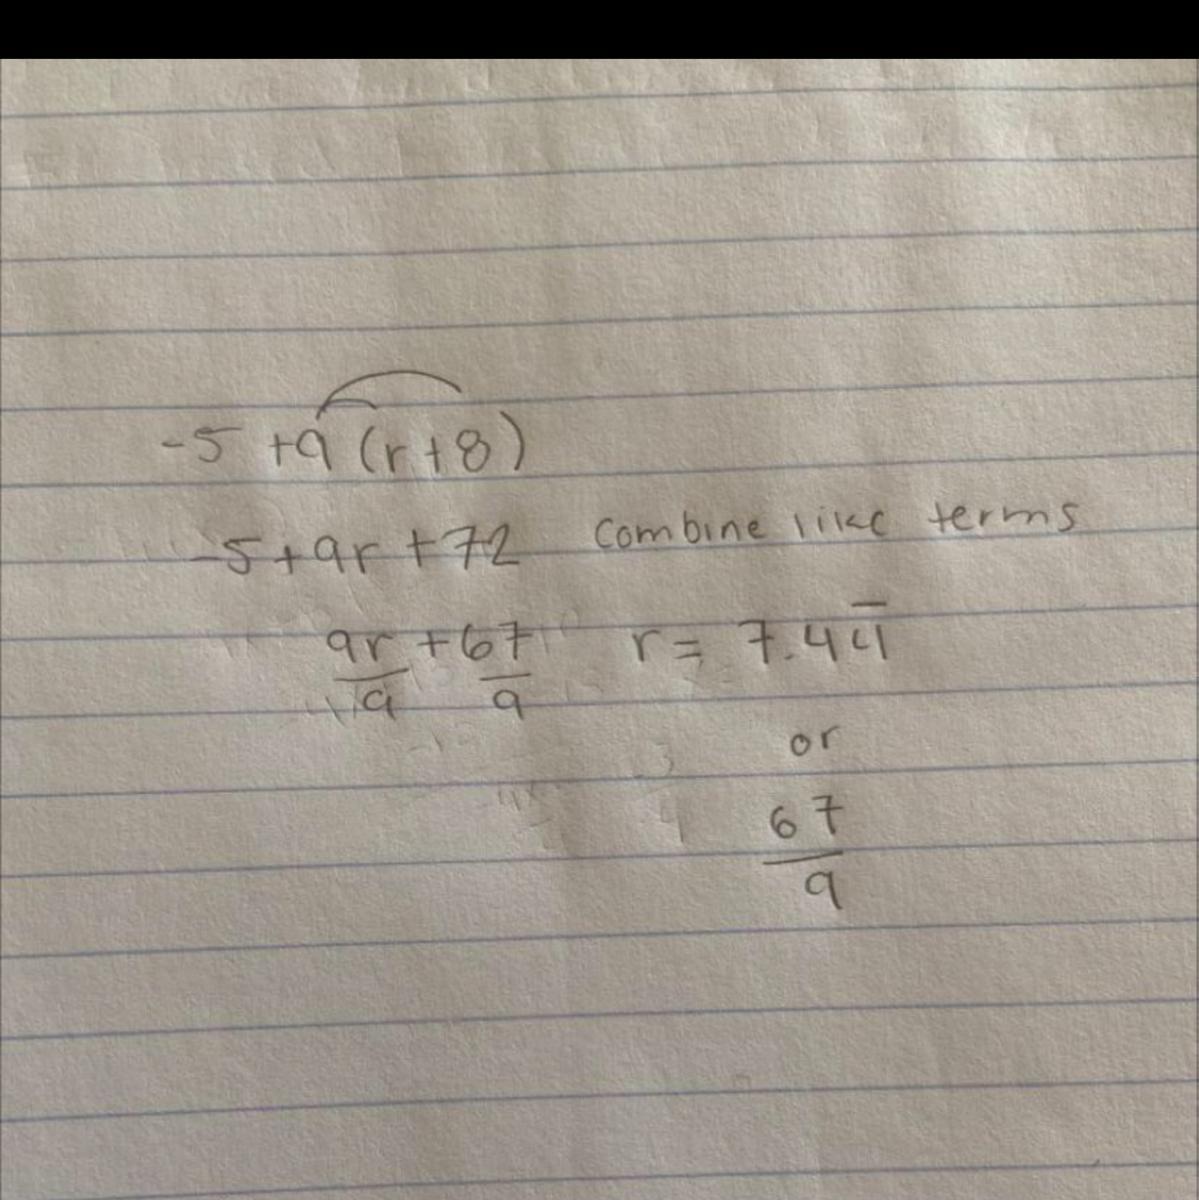 -5 +9 (r+8)
-5+9r +72 Combine like terms
9r/9 +67/9 r = 7.44̅
or
67/9